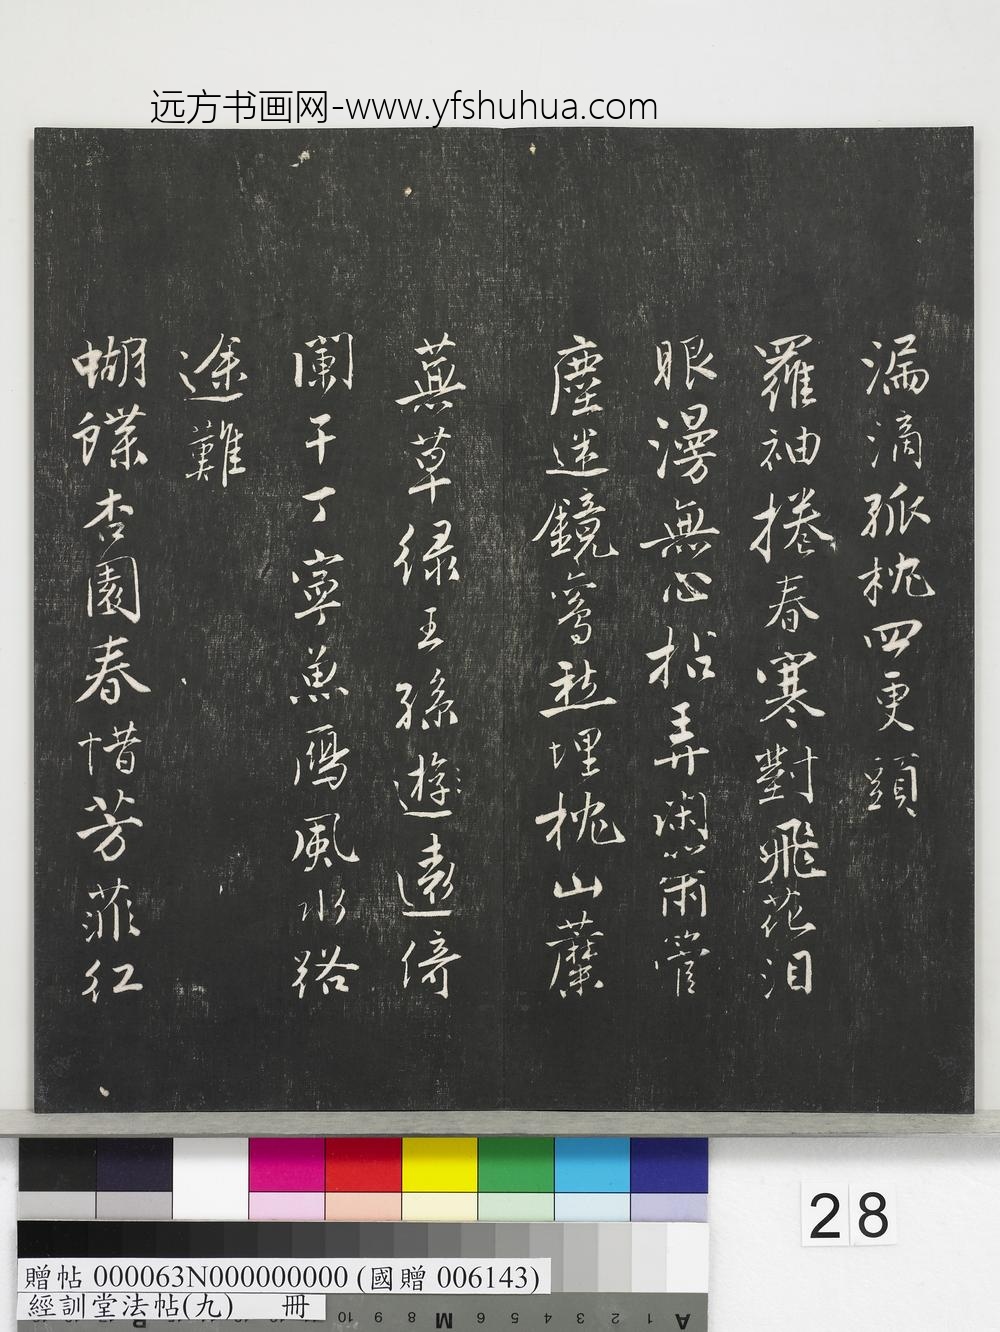 远方书画网-www.yfshuhua.com
漏滴孤枕四更頭
羅袖捲春寒對飛花泪
眼漫無心拈弄閑簫管
塵迷鏡鸞愁埋枕山蘼
蕪草緑王孫遊遠倚
闌干丁寧魚鴈風水路
途難
蝴蝶杏園春惜芳菲紅
28
贈帖 000063N000000000 (國贈 006143)
經訓堂法帖(九) 冊
R 10 9 8 M 6 5 4 3 2 1 A